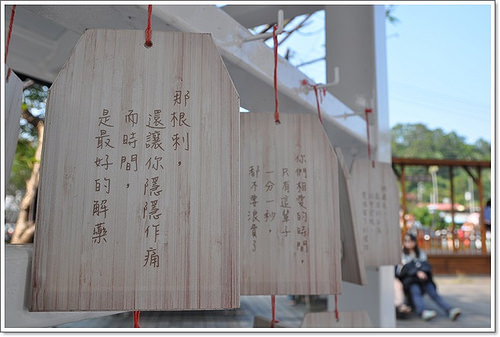 那根刺，
還讓你隱隱作痛
而時間，
是最好的解藥
你們相愛的時間，
只有這輩子
一分一秒，
都不要浪費了